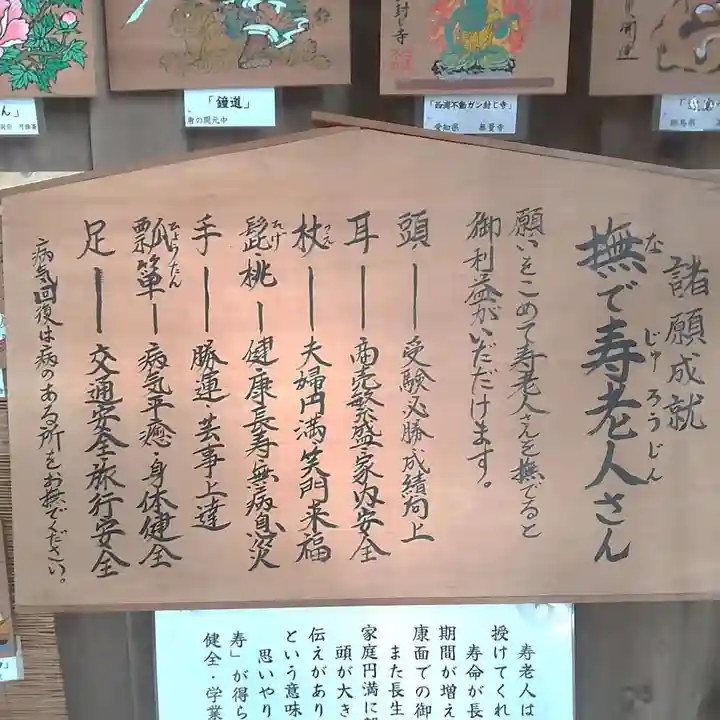 封じ寺
開運
ん」
「鐘道」
唐の開元中
「西浦不動ガン封じ寺」
愛知県 無量寺
諸願成就
撫で寿老人さん
な
じゅろうじん
願いをこめて寿老人さんを撫でると
御利益がいただけます。
頭 ― 受験必勝・成績向上
耳 ― 商売繁盛・家内安全
杖 ― 夫婦円満・笑門来福
つえ
髭・桃 ― 健康長寿・無病息災
ひげ
手 ― 勝運・芸事上達
瓢箪 ― 病気平癒・身体健全
ひょうたん
足 ― 交通安全・旅行安全
病気回復は病のある所をお撫でください。
寿老人は
授けてくれ
寿命が長
期間が増え
康面での御
また長生
家庭円満に
頭が大き
伝えがあり
という意味
思いやり
寿」が得ら
健全・学業